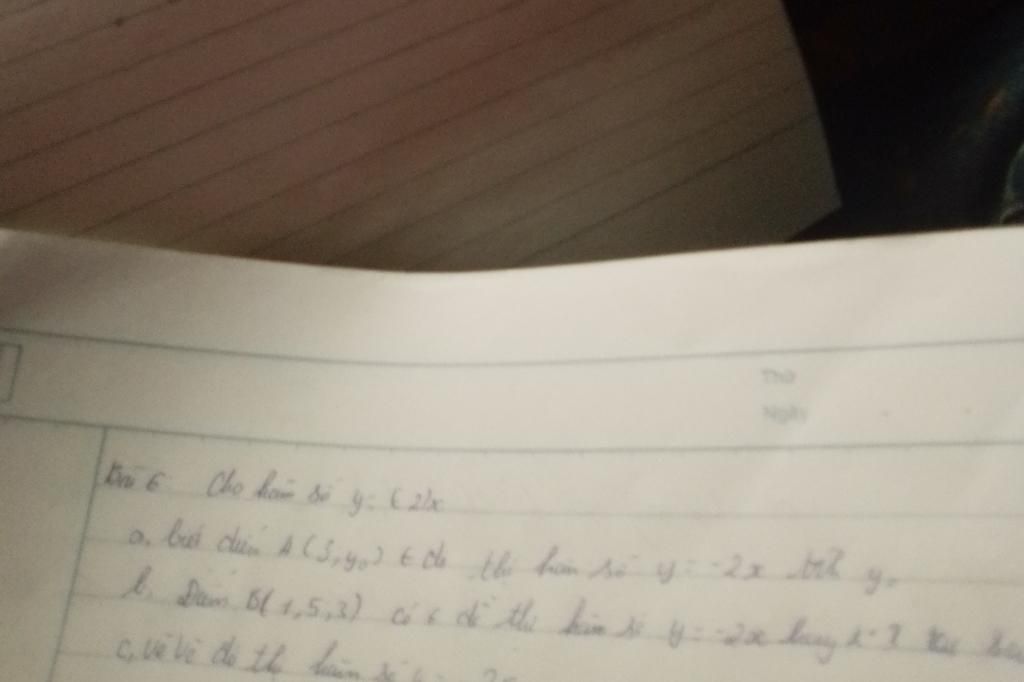 Thứ
Ngày
Bài 6: Cho hàm số y = (-2)x
a, biết điểm A(3, y₀) ∈ đồ thị hàm số y = -2x. y₀
b, Điểm B(1,5,3) có ∈ đồ thị hàm số y = -2x hay k ?
c, vẽ đồ thị hàm số y =